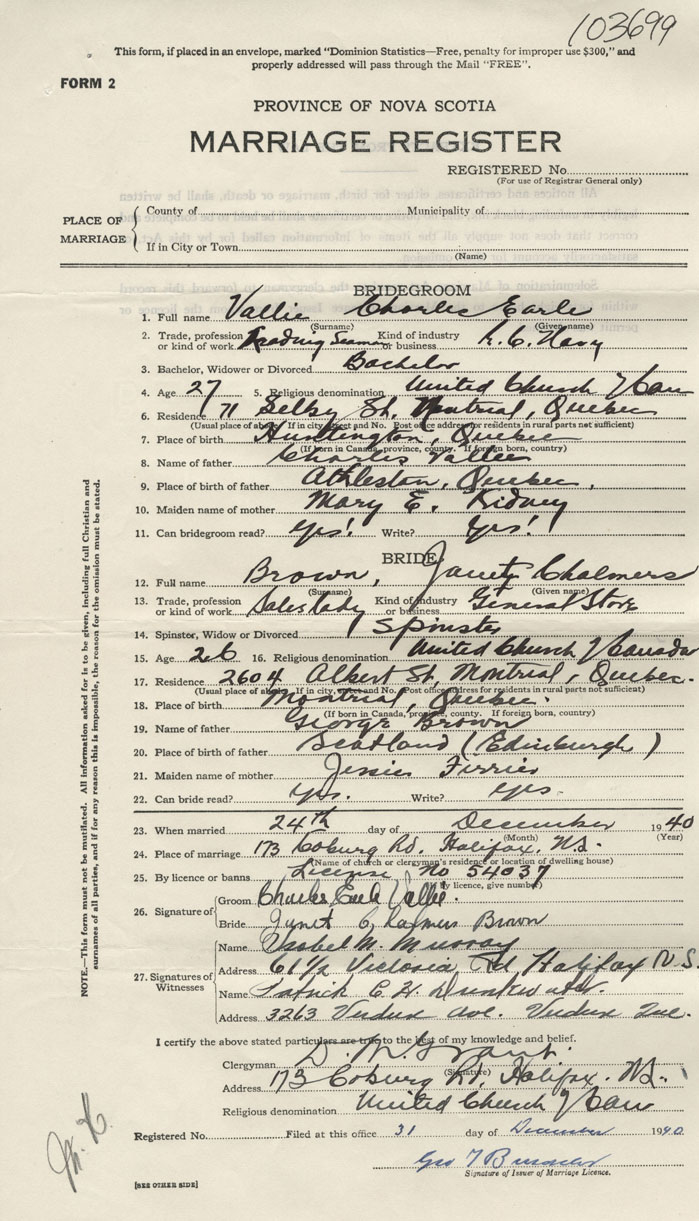 103699
This form, if placed in an envelope, marked "Dominion Statistics—Free, penalty for improper use $300," and
properly addressed will pass through the Mail "FREE".
FORM 2
PROVINCE OF NOVA SCOTIA
MARRIAGE REGISTER
REGISTERED No.
(For use of Registrar General only)
PLACE OF MARRIAGE
County of Municipality of
If in City or Town
(Name)
BRIDEGROOM
1. Full name Vallie Charles Earle
(Surname) (Given name)
2. Trade, profession or kind of work Leading Seaman Kind of industry or business R.C. Navy
3. Bachelor, Widower or Divorced Bachelor
4. Age 27 5. Religious denomination United Church / Can
6. Residence 71 Selby St. Montrial, Quebec
(Usual place of abode. If in city, street and No. Post office address for residents in rural parts not sufficient)
7. Place of birth Huntington, Quebec
(If born in Canada, province, county. If foreign born, country)
8. Name of father Charles Vallie
9. Place of birth of father Athleston, Quebec,
10. Maiden name of mother Mary E. Kidney
11. Can bridegroom read? Yes! Write? Yes!
BRIDE
12. Full name Brown, Janet Chalmers
(Surname) (Given name)
13. Trade, profession or kind of work Saleslady Kind of industry or business General Store
14. Spinster, Widow or Divorced Spinster
15. Age 26 16. Religious denomination United Church / Canada
17. Residence 2604 Albert St, Montrial, Quebec.
(Usual place of abode. If in city, street and No. Post office address for residents in rural parts not sufficient)
18. Place of birth Montrial, Quebec.
(If born in Canada, province, county. If foreign born, country)
19. Name of father George Brown
20. Place of birth of father Scotland (Edinburgh)
21. Maiden name of mother Jessie Ferrier
22. Can bride read? Yes. Write? Yes.
23. When married 24th day of December 1940
(Month) (Year)
24. Place of marriage 173 Coburg Rd. Halifax. N.S.
(Name of church or clergyman's residence or location of dwelling house)
25. By licence or banns License No 54037
(If by licence, give number)
26. Signature of Groom Charles Earle Vallie.
Bride Janet Chalmers Brown
27. Signatures of Witnesses
Name Isobel M. Murray
Address 61½ Victoria Rd Halifax N.S.
Name Patrick E. H. Drinkwater.
Address 3263 Verdun Ave. Verdun Que.
I certify the above stated particulars are true to the best of my knowledge and belief.
Clergyman D. M. Grant.
(Signature)
Address 173 Coburg Rd, Halifax. N.S.
Religious denomination United Church / Can
Registered No. Filed at this office 31 day of December 1940
Geo T
Signature of Issuer of Marriage Licence.
[SEE OTHER SIDE]
NOTE.—This form must not be mutilated. All information asked for is to be given, including full Christian and
surnames of all parties, and if for any reason this is impossible, the reason for the omission must be stated.